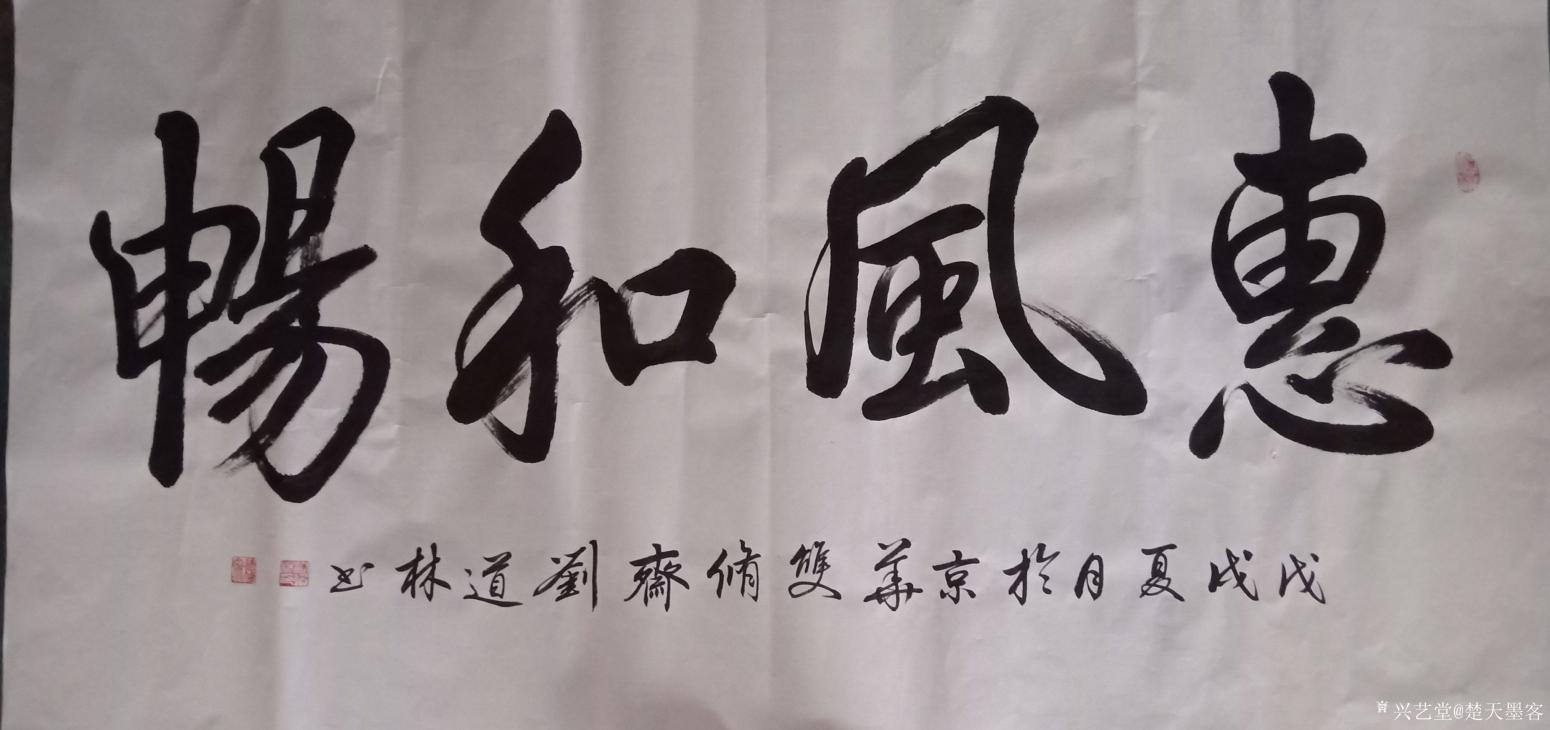 惠風和暢
戊戌夏月於京華雙脩齋劉道林书
兴艺堂@楚天墨客